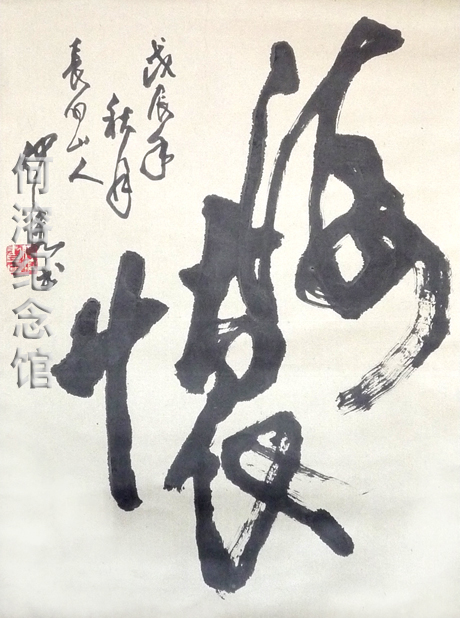 海懷
戊辰年
秋月
長白山人
纪念馆